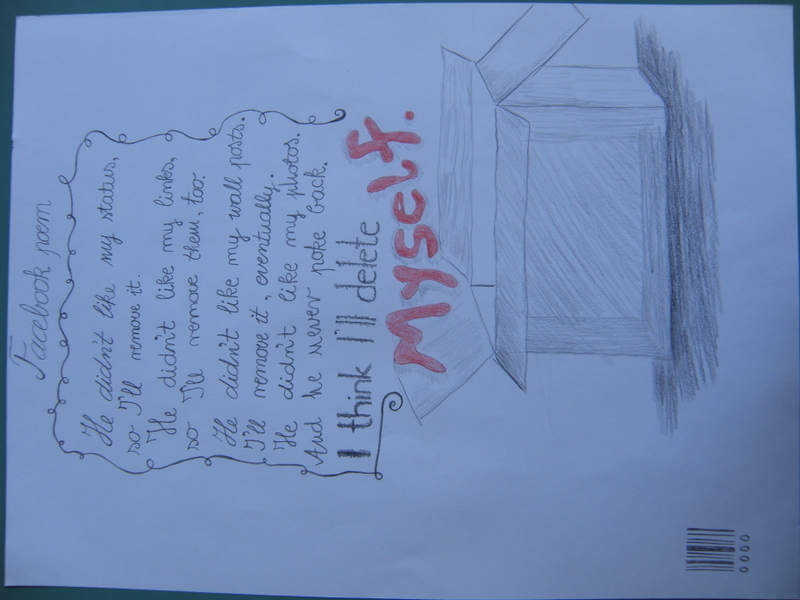 Facebook poem
He didn't like my status,
so I'll remove it.
He didn't like my links,
so I'll remove them, too.
He didn't like my wall posts.
I'll remove it, eventually.
He didn't like my photos.
And he never poke back.
I think I'll delete
Myself.
0000